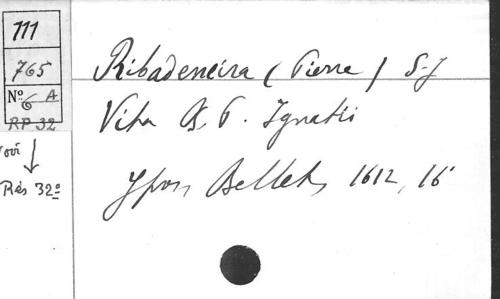 111
765
Nº 6 A
RP 32
Rés 32º
Ribadeneira (Pierre) S.J
Vita B. P. Ignatii
Bellet, 1612, 16º